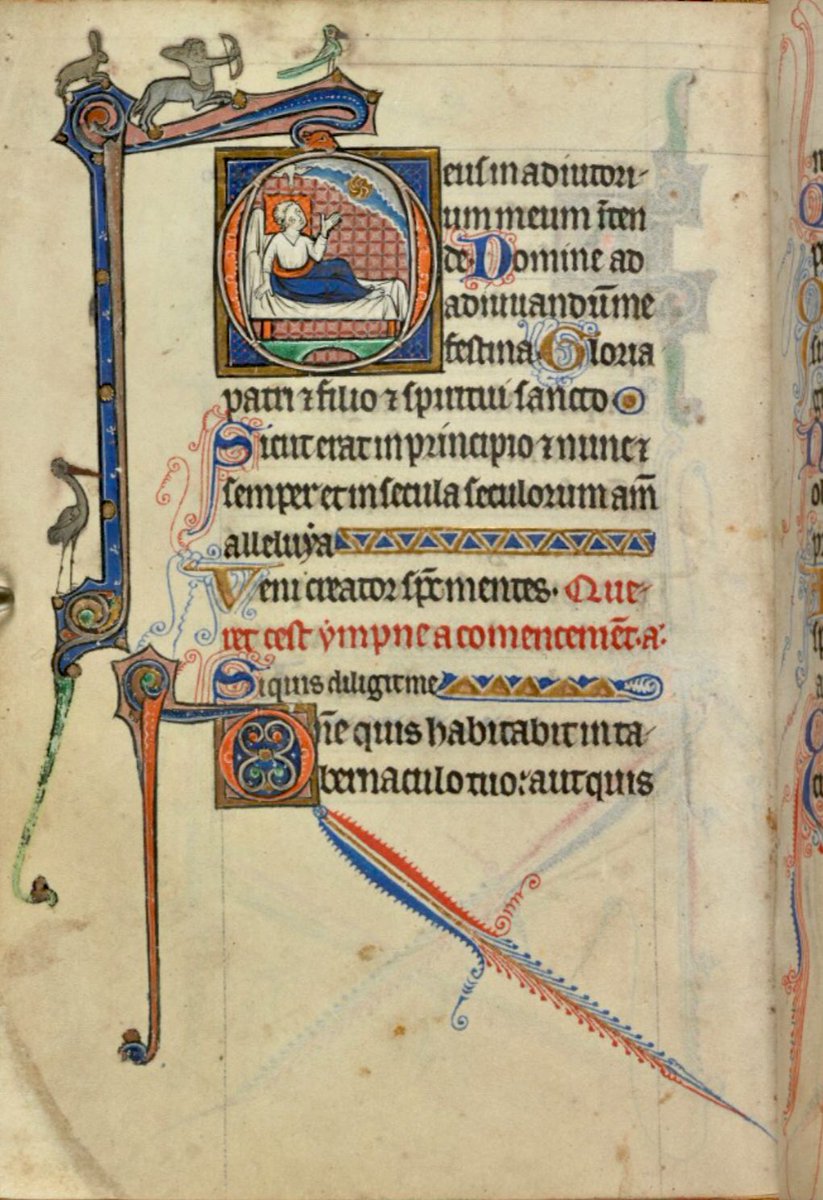 Deus in adiutori-
um meum inten
de. Domine ad
adiuuandum me
festina. Gloria
patri ⁊ filio ⁊ spiritui sancto
Sicut erat in principio ⁊ nunc ⁊
semper et in secula seculorum am̄
alleluya
Veni creator sp̄c mentes. Que-
ret cest ympne a comencemēt. a.
Si quis diligit me
Dn̄e quis habitabit in ta-
bernaculo tuo: aut quis